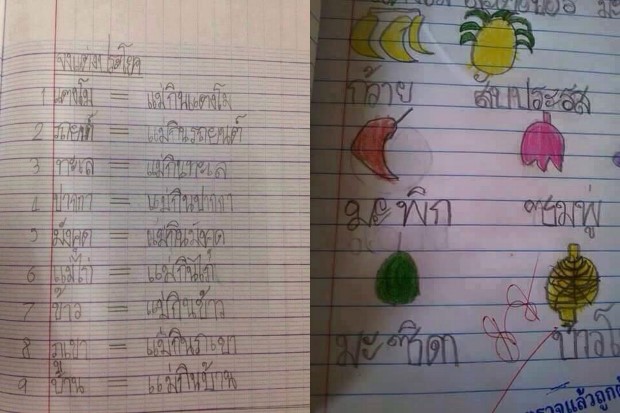 จงแต่งประโยค
1 แตงโม = แม่กินแตงโม
2 รถยนต์ = แม่กินรถยนต์
3 ทะเล = แม่กินทะเล
4 ปากกา = แม่กินปากกา
5 มังคุด = แม่กินมังคุด
6 แม่ไก่ = แม่กินไก่
7 ข้าว = แม่กินข้าว
8 ภูเขา = แม่กินภูเขา
9 บ้าน = แม่กินบ้าน
ก้วาย สับประรส
มะพิก ชมพู่
มะซิดา